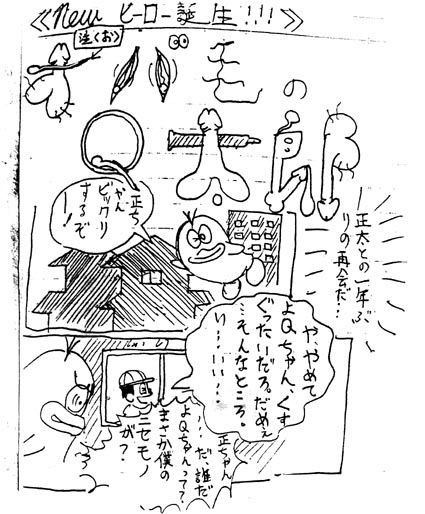 ≪New ヒーロー誕生!!!≫
注〈お〉
毛の
Q太郎
正ち
ゃん
ビックリ
するぞ
ー!
正太との一年ぶ
りの再会だ…
や、やめて
よQちゃん、くす
ぐったいだろ。だめぇ
…そんなところ。
い…いい…
正ちゃん
…だ誰だ
よQちゃんって?
まさか僕の
ニセモノ
が?